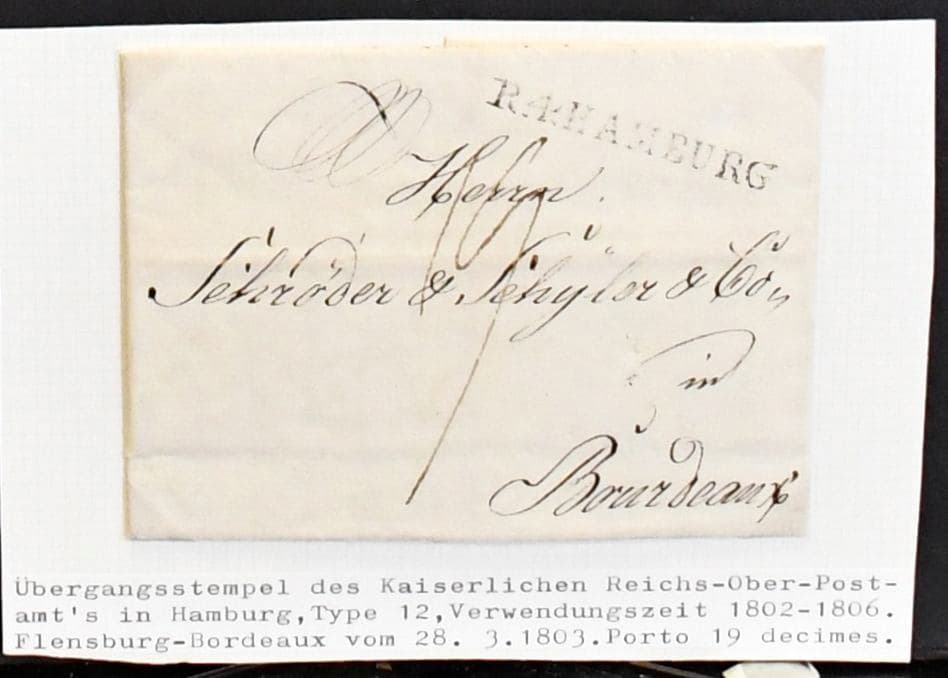 R.4.HAMBURG
Herrn
19
Schröder & Schÿler & Co,
in
Bourdeaux
Übergangsstempel des Kaiserlichen Reichs-Ober-Post-
amt's in Hamburg,Type 12,Verwendungszeit 1802-1806.
Flensburg-Bordeaux vom 28. 3.1803.Porto 19 decimes.